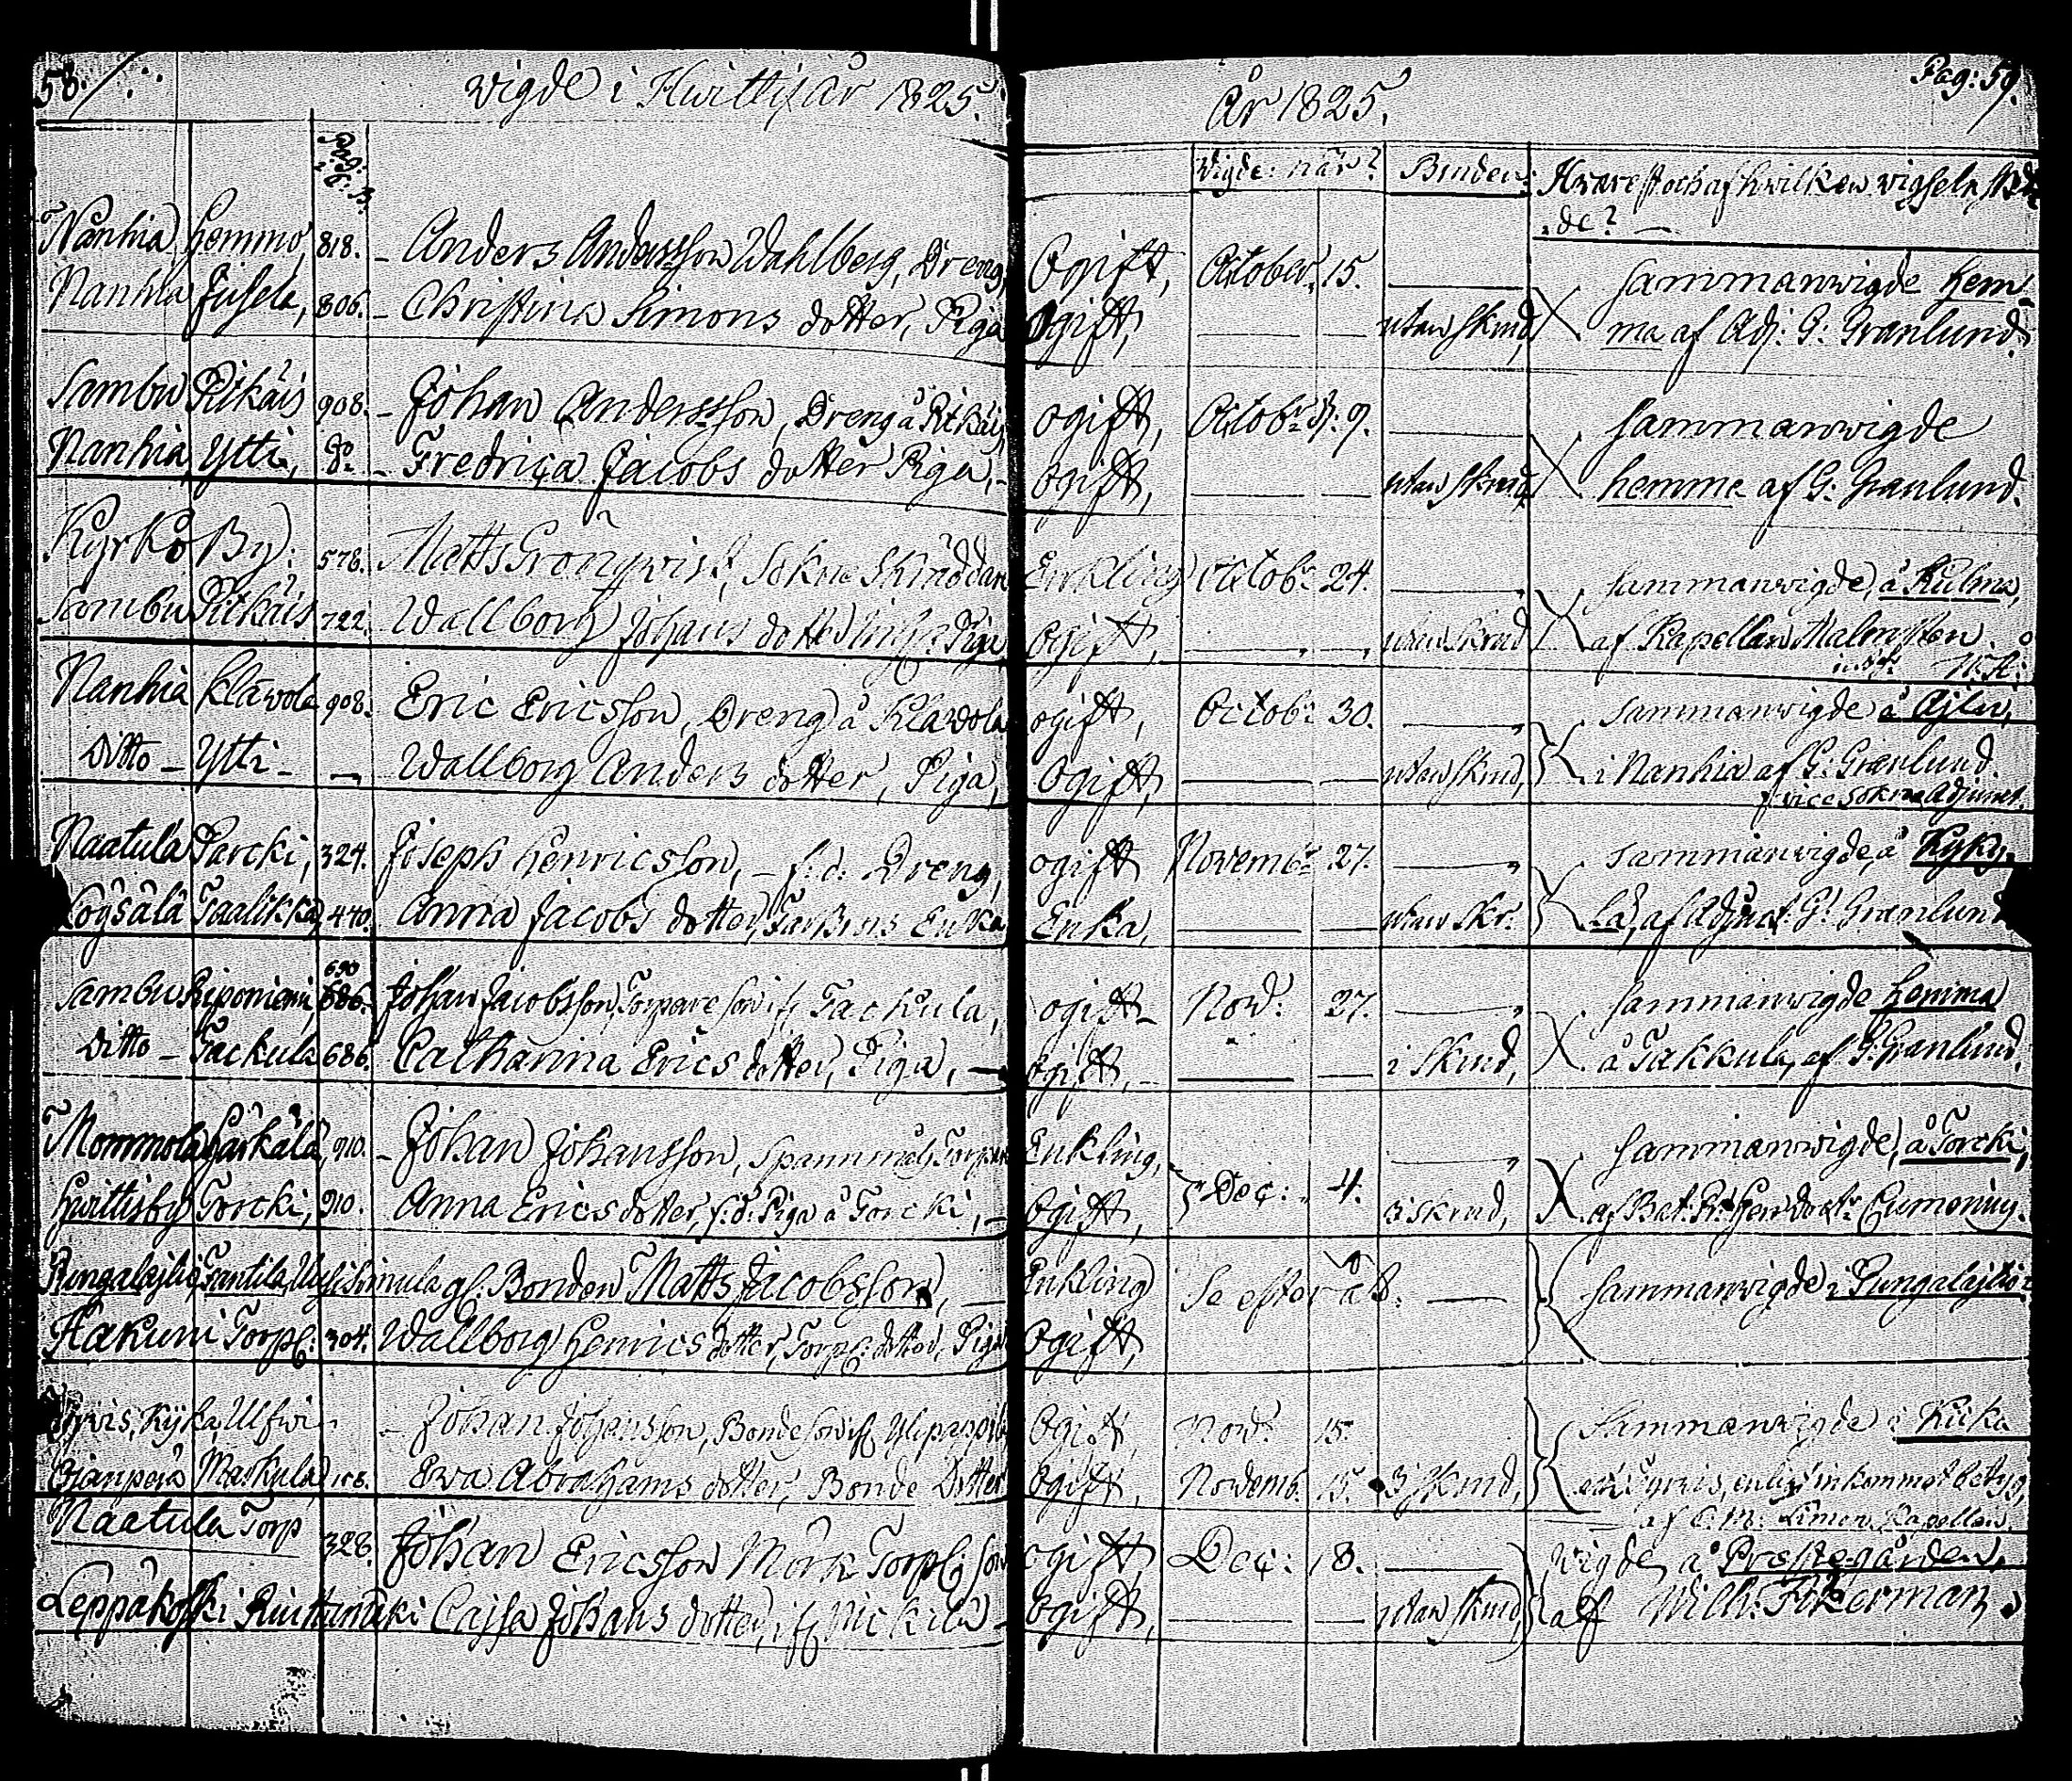 58. Wigde i Hwittis år 1825.
År 1825. Pag: 59.
Pag: i C.B.
Wigde: när? Bruden: Hwarest och af hwilken wigseln sked-
de?
Nanhia Hemmo, 818. Anders Andersson Wahlberg, Dreng, Ogift, October 15. Sammanwigde hem-
Nanhia Jusela, 806. Christina Simons dotter, Piga Ogift, utan skrud, ma af Adj: G: Granlund.
Sambu Pitkäis 908. Johan Andersson, Dreng å Pitkäis, ogift, Octobr d. 9. Sammanwigde
Nanhia Ytti, do Fredrica Jacobs dotter Piga, ogift, utan skrud, hemma af G: Granlund.
Kyrko By: 578. Matts Grönqwist, Sokne Skräddare Enkling Octobr 24. Sammanwigde, å Kulma,
Sambu Pitkäis 722. Wallborg Johans dotter Piga Ogift, utan skrud af Kapellan Malmsten
Nanhia Klawola 908. Eric Ericsson, Dreng å Klawola ogift, Octobr 30. Sammanwigde å Äjlä,
Ditto - Ytti - Wallborg Anders dotter, Piga, Ogift, utan skrud, i Nanhia af G: Granlund.
vice Sokne Adjunct.
Naatula Parcki, 324. Joseph Henricsson, - f: d: Dreng, ogift Novembr 27. Sammanwigde, å Kyky-
Kogsälä Taalikka, 440. Anna Jacobs dotter, Enka Enka, utan skr. lä, af Adjunct: G: Granlund
690
Sambu Riponiemi, 686. Johan Jacobsson, Torpare son ifr Tackula, ogift Nov: 27. Sammanwigde hemma
Ditto - Tackula 686. Catharina Erics dotter, Piga, ogift, i Skrud, å Takkula, af G: Granlund.
Mommola Härkälä, 910. Johan Johansson, Spannmåls Torpare Enkling, Dec: 4. Sammanwigde, å Torcki,
Hwittisby Torcki, 910. Anna Erics dotter, f: d: Piga å Torcki, Ogift, i skrud, af Bat: Pr: Herr Doctr Cumenius.
Pungalajtio Santila, gl: Bonden Matts Jacobsson, Enkling Se efter Sammanwigde i Pungalajtio
Hakuni Torp: 304. Wallborg Henrics dotter, Torp: dotter, Piga Ogift,
Tyrwis, Kijka, Ulfwi Johan Johansson, Bonde Son ifr Ogift, Nov: 15. Sammanwigde i Kiika
Björnperä Maskula 108. Ewa Abrahams dotter, Bonde Dotter Ogift, Novemb. 15. i skrud, Tyrwis, enligt inkommet betyg,
af C: M: Limon Kapellan.
Naatula Torp 328. Johan Ericsson Mörk Torp: son ogift, Dec: 18. Wigde å Prestegården,
Leppäkoski Ruittamäki Cajsa Johans dotter, ifr Nickilä - Ogift, utan skrud, af Wilh: Fokerman,